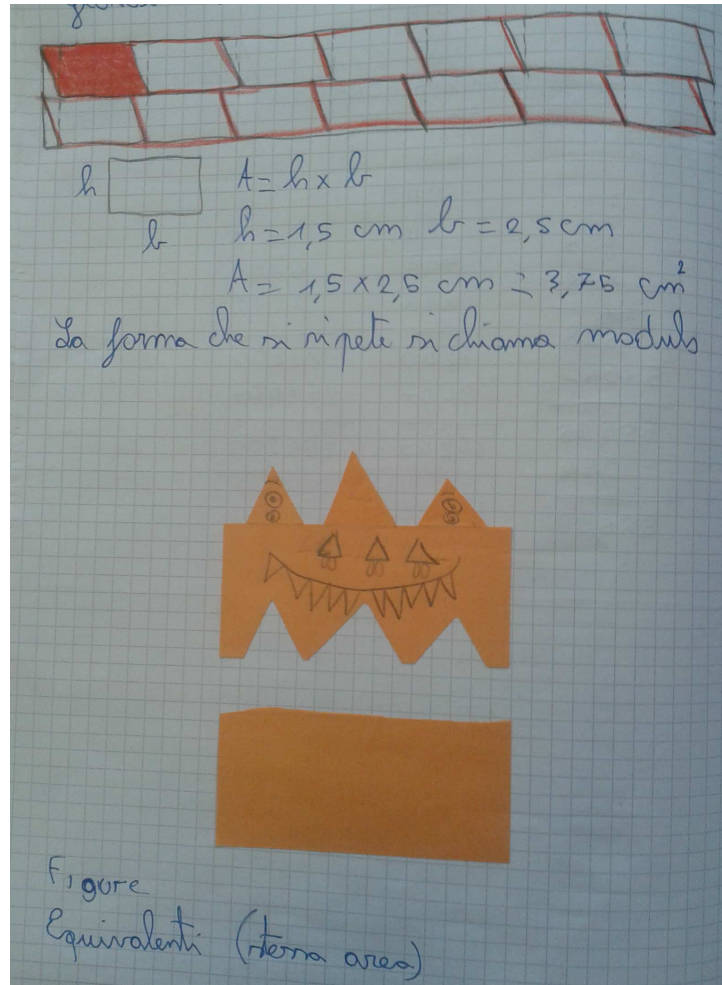 h
b
A = h x b
h = 1,5 cm b = 2,5 cm
A = 1,5 x 2,5 cm = 3,75 cm²
La forma che si ripete si chiama modulo
Figure
Equivalenti (stessa area)